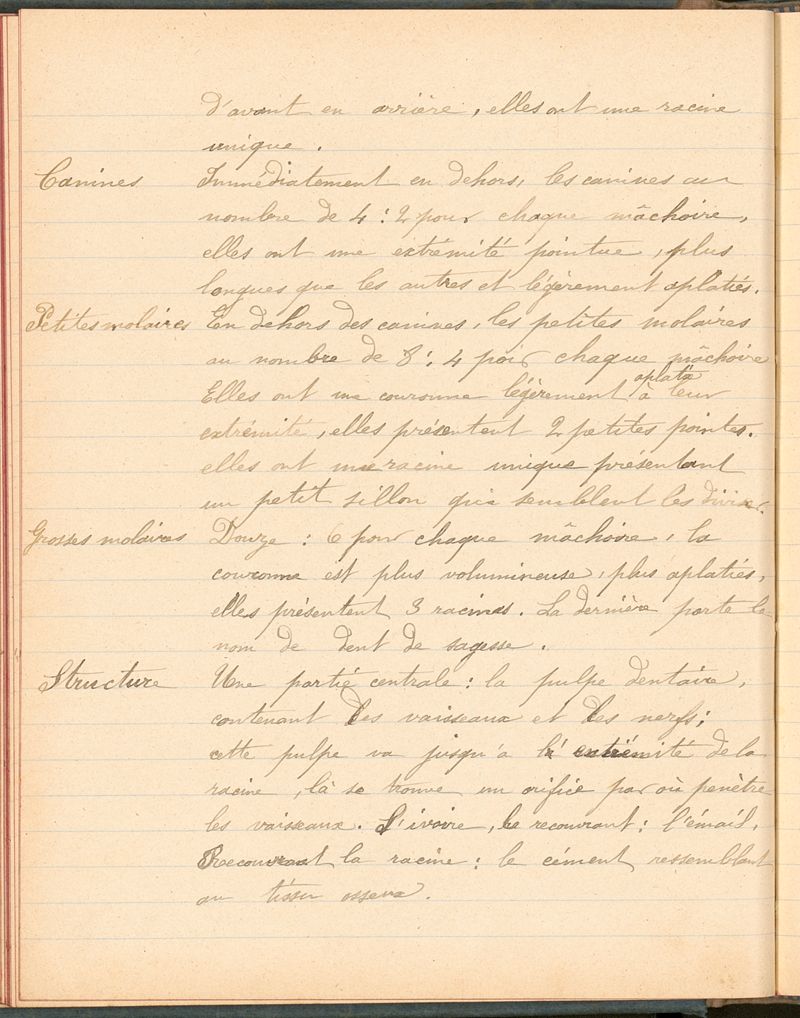 d'avant en arrière, elles ont une racine
unique.
Canines Immédiatement en dehors, les canines au
nombre de 4 : 2 pour chaque mâchoire,
elles ont une extrémité pointue, plus
longues que les autres et légèrement aplaties.
Petites molaires En dehors des canines, les petites molaires
au nombre de 8 : 4 pour chaque mâchoire
Elles ont une couronne légèrement aplatie à leur
extrémité, elles présentent 2 petites pointes.
elles ont une racine unique présentant
un petit sillon qui semblent les diviser.
Grosses molaires Douze : 6 pour chaque mâchoire, la
couronne est plus volumineuse, plus aplaties,
elles présentent 3 racines. La dernière porte le
nom de dent de sagesse.
Structure Une partie centrale : la pulpe dentaire,
contenant des vaisseaux et des nerfs ;
cette pulpe va jusqu'à l'extrémité de la
racine, là se trouve un orifice par où penètre
les vaisseaux. L'ivoire, le recouvrant : l'émail.
Recouvrant la racine : le cément ressemblant
au tissu osseux.